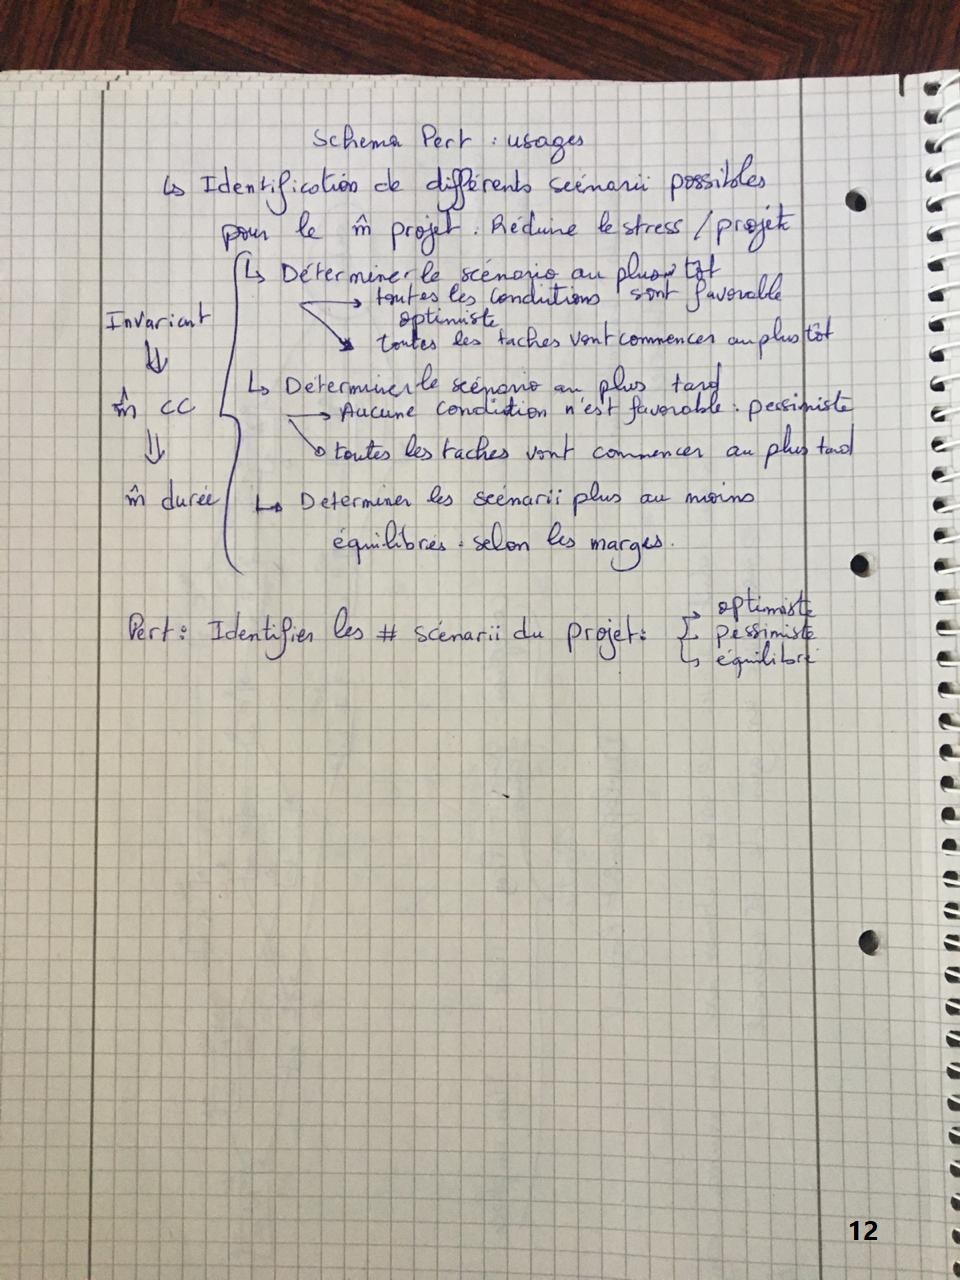 Schema Pert : usages
↳ Identification de différents scénarii possibles
pour le m̂ projet. Réduire le stress / projet
↳ Déterminer le scénario au plus tôt
→ toutes les conditions sont favorable
optimiste
Invariant
toutes les taches vont commencer au plus tôt
↳ Déterminer le scénario au plus tard
m̂ CC
→ Aucune condition n'est favorable : pessimiste
toutes les taches vont commencer au plus tard
m̂ durée
↳ Determiner les scénarii plus au moins
équilibrés . selon les marges.
optimiste
Pert : Identifier les # scénarii du projet :
pessimiste
équilibré
12